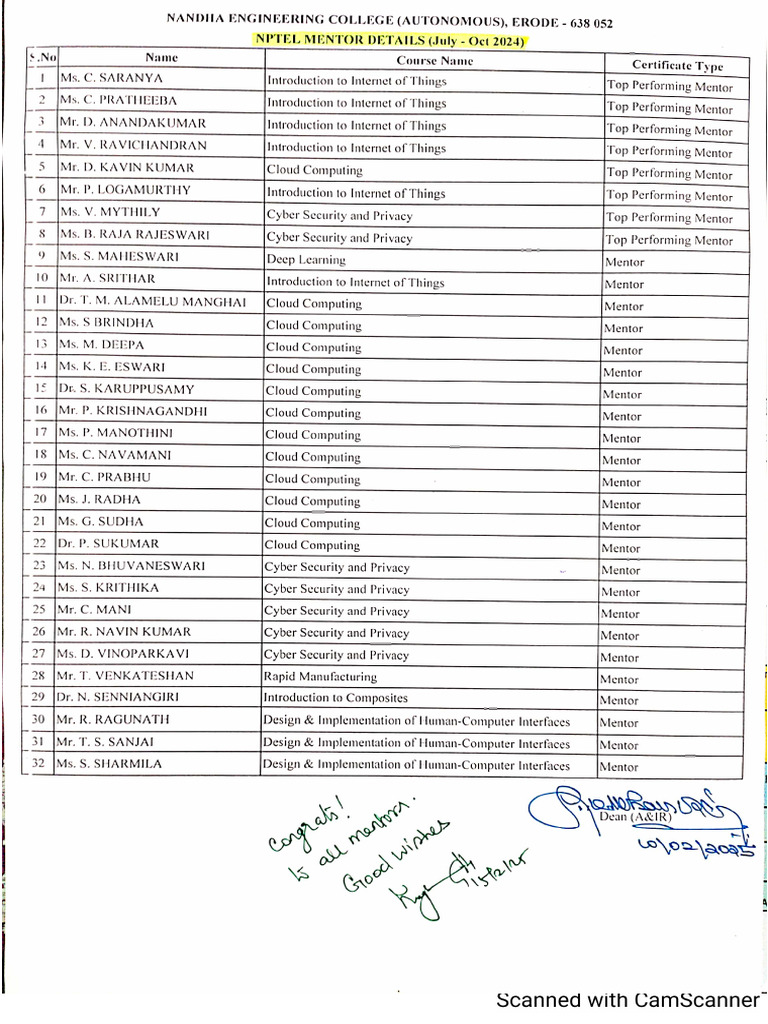 NANDHA ENGINEERING COLLEGE (AUTONOMOUS), ERODE - 638 052
NPTEL MENTOR DETAILS (July - Oct 2024)
S.No Name Course Name Certificate Type
1 Ms. C. SARANYA Introduction to Internet of Things Top Performing Mentor
2 Ms. C. PRATHEEBA Introduction to Internet of Things Top Performing Mentor
3 Mr. D. ANANDAKUMAR Introduction to Internet of Things Top Performing Mentor
4 Mr. V. RAVICHANDRAN Introduction to Internet of Things Top Performing Mentor
5 Mr. D. KAVIN KUMAR Cloud Computing Top Performing Mentor
6 Mr. P. LOGAMURTHY Introduction to Internet of Things Top Performing Mentor
7 Ms. V. MYTHILY Cyber Security and Privacy Top Performing Mentor
8 Ms. B. RAJA RAJESWARI Cyber Security and Privacy Top Performing Mentor
9 Ms. S. MAHESWARI Deep Learning Mentor
10 Mr. A. SRITHAR Introduction to Internet of Things Mentor
11 Dr. T. M. ALAMELU MANGHAI Cloud Computing Mentor
12 Ms. S BRINDHA Cloud Computing Mentor
13 Ms. M. DEEPA Cloud Computing Mentor
14 Ms. K. E. ESWARI Cloud Computing Mentor
15 Dr. S. KARUPPUSAMY Cloud Computing Mentor
16 Mr. P. KRISHNAGANDHI Cloud Computing Mentor
17 Ms. P. MANOTHINI Cloud Computing Mentor
18 Ms. C. NAVAMANI Cloud Computing Mentor
19 Mr. C. PRABHU Cloud Computing Mentor
20 Ms. J. RADHA Cloud Computing Mentor
21 Ms. G. SUDHA Cloud Computing Mentor
22 Dr. P. SUKUMAR Cloud Computing Mentor
23 Ms. N. BHUVANESWARI Cyber Security and Privacy Mentor
24 Ms. S. KRITHIKA Cyber Security and Privacy Mentor
25 Mr. C. MANI Cyber Security and Privacy Mentor
26 Mr. R. NAVIN KUMAR Cyber Security and Privacy Mentor
27 Ms. D. VINOPARKAVI Cyber Security and Privacy Mentor
28 Mr. T. VENKATESHAN Rapid Manufacturing Mentor
29 Dr. N. SENNIANGIRI Introduction to Composites Mentor
30 Mr. R. RAGUNATH Design & Implementation of Human-Computer Interfaces Mentor
31 Mr. T. S. SANJAI Design & Implementation of Human-Computer Interfaces Mentor
32 Ms. S. SHARMILA Design & Implementation of Human-Computer Interfaces Mentor
Dean (A&IR)
10/02/2025
Congrats!
to all mentors.
Good wishes
15/2/25
Scanned with CamScanner